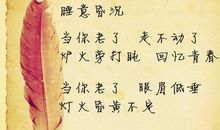 睡意昏沉
当你老了 走不动了
炉火旁打盹 回忆青春
当你老了 眼眉低垂
灯火昏黄不定